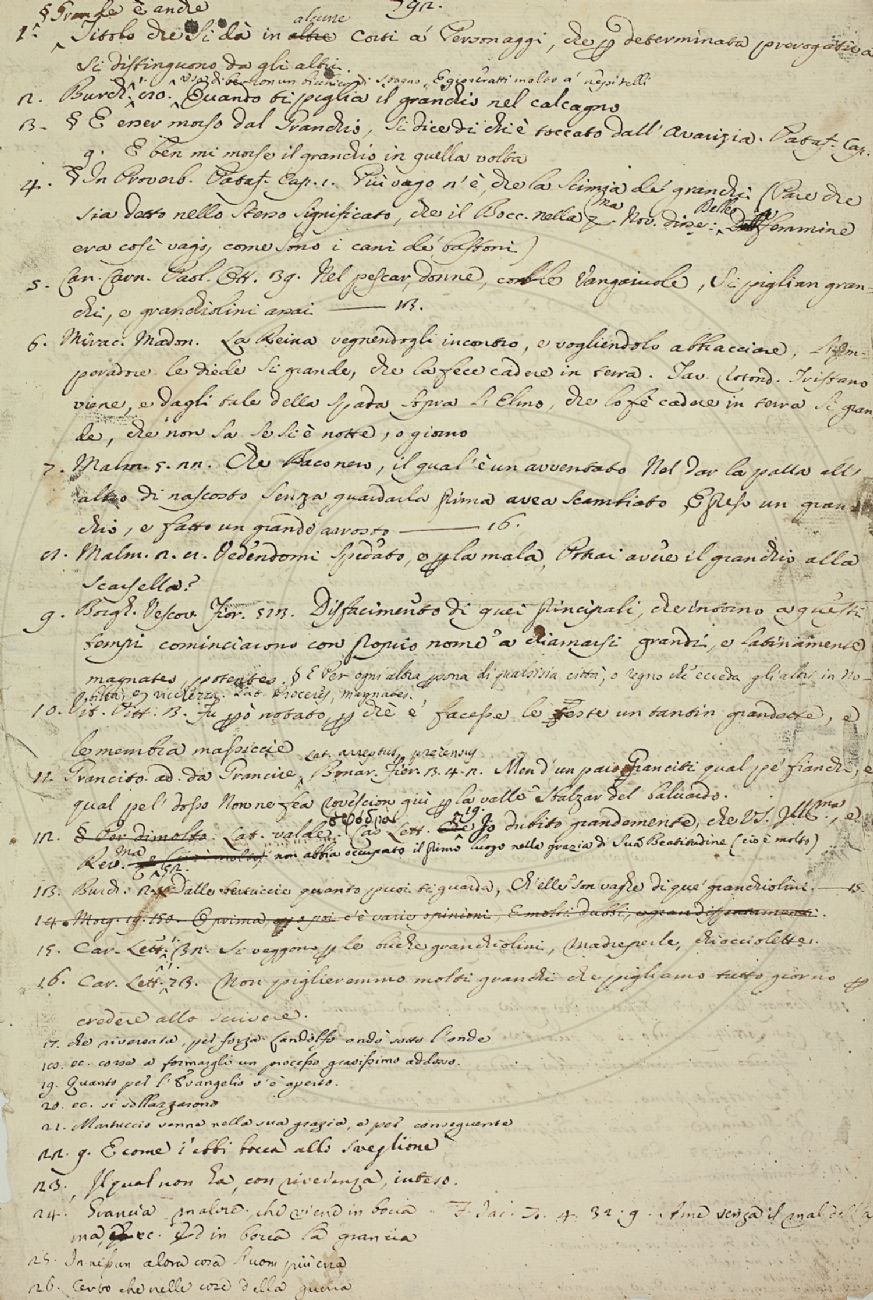 § Grande è anche 192.
1. Titolo che si dà in altre alcune Corti a' Personaggi, che p determinata prerogativa
si distinguono da gli altri.
2. Burch. Quando ti piglia il granchio nel calcagno
3. § E esser morso dal Granchio, si dice di chi è toccato dall' Avarizia. Pataf. Cap.
9. E ben mi morse il granchio in quella volta
4. § In Proverb. Pataf. Cap. 1. Più vago n'è, che la Scimia de' granchi (Pare che
sia detto nello stesso significato, che il Bocc. nella Nov. disse: Delle femmine
era così vago, come sono i cani de' bastoni)
5. Can. Carn. Paol. Ott. 39. Nel pescar, donne, con le Vangaiuole, si piglian gran-
chi, e granchiolini assai
6. Mirac. Madon. La Reina vegnendogli incontro, e vogliendolo abbracciare, l'Im-
peradore le diede sì grande, che la fece cadere in terra. Tav. Ritond. Tristano
viene, e dagli tale della spada sopra l'Elmo, che lo fè cadere in terra sì gran-
de, che non sa se si è notte, o giorno
7. Malm. 5. Che Baconero, il qual'è un avventato Nel dar la palla all'
altro di nascosto Senza guardarla prima avea scambiato E preso un gran-
chio, e fatto un grande arrosto 16.
Malm. Vedendomi spedato, e p la mala, Ch'hai avere il granchio alla
scarsella?
9. Borgh. Vescov. Fior. Disfacimento di quei principali, che intorno a questi
tempi cominciarono con proprio nome a chiamarsi grandi, e latinamente
magnates, potentes. § E Per ogni altra persona di qualsisia città, o regno ch'ecceda gli altri in No-
biltà, e ricchezza. Lat. Proceres, magnates.
10. Vit. Pitt. Fu p ò notato, p ch'è e' facesse le teste un tantin grandette, e
le membra massiccie
11. Grancito. ad. da Grancire Lat. arreptus, Bonar. Fier. Men d'un paio Granciti qual pe' fianchi, e
qual pe'l dosso Non ne fea rovescion qui p la valle Sbalzar del baluardo.
12. § Per dimolto. Lat. valde. Car. Lett. Io dubito grandemente, che V.S. Illma, e
Rev.ma non abbia occupato il primo luogo nella grazia di Sua Beatitudine (cioè molto)
13. Burch. Dalle bertuccie quanto puoi ti guarda, Ch'elle son vaghe di que' granchiolini.
14. Morg. 19. E prima, e poi c'è varie opinioni, E molti dubbi, e gran
15. Car. Lett. Si veggono p le buche granchiolini, madreperle, chiocciolette.
16. Car. Lett. Non piglieremmo molti granchi che pigliamo tutto giorno p
credere allo scrivere.
17. che riversata, per forza Landolfo andò sotto l'onde
ec. corse a formargli un processo gravissimo addosso.
19. Quanto per l'Evangelio v'è aperto.
20. ec. si sollazzarono
21. Martuccio venne nella sua grazia, e per conseguente
22. 9. E come i' ebbi bocca allo sveglione
23. Il qual non ha, con riverenza, inteso.
24. Grancia malore, che viene in bocca 4. 32. 9. senza il mal della
ma, ec. Ed in bocca la grancia
25. alora cosa
26. Cerbo che nelle cose della guerra